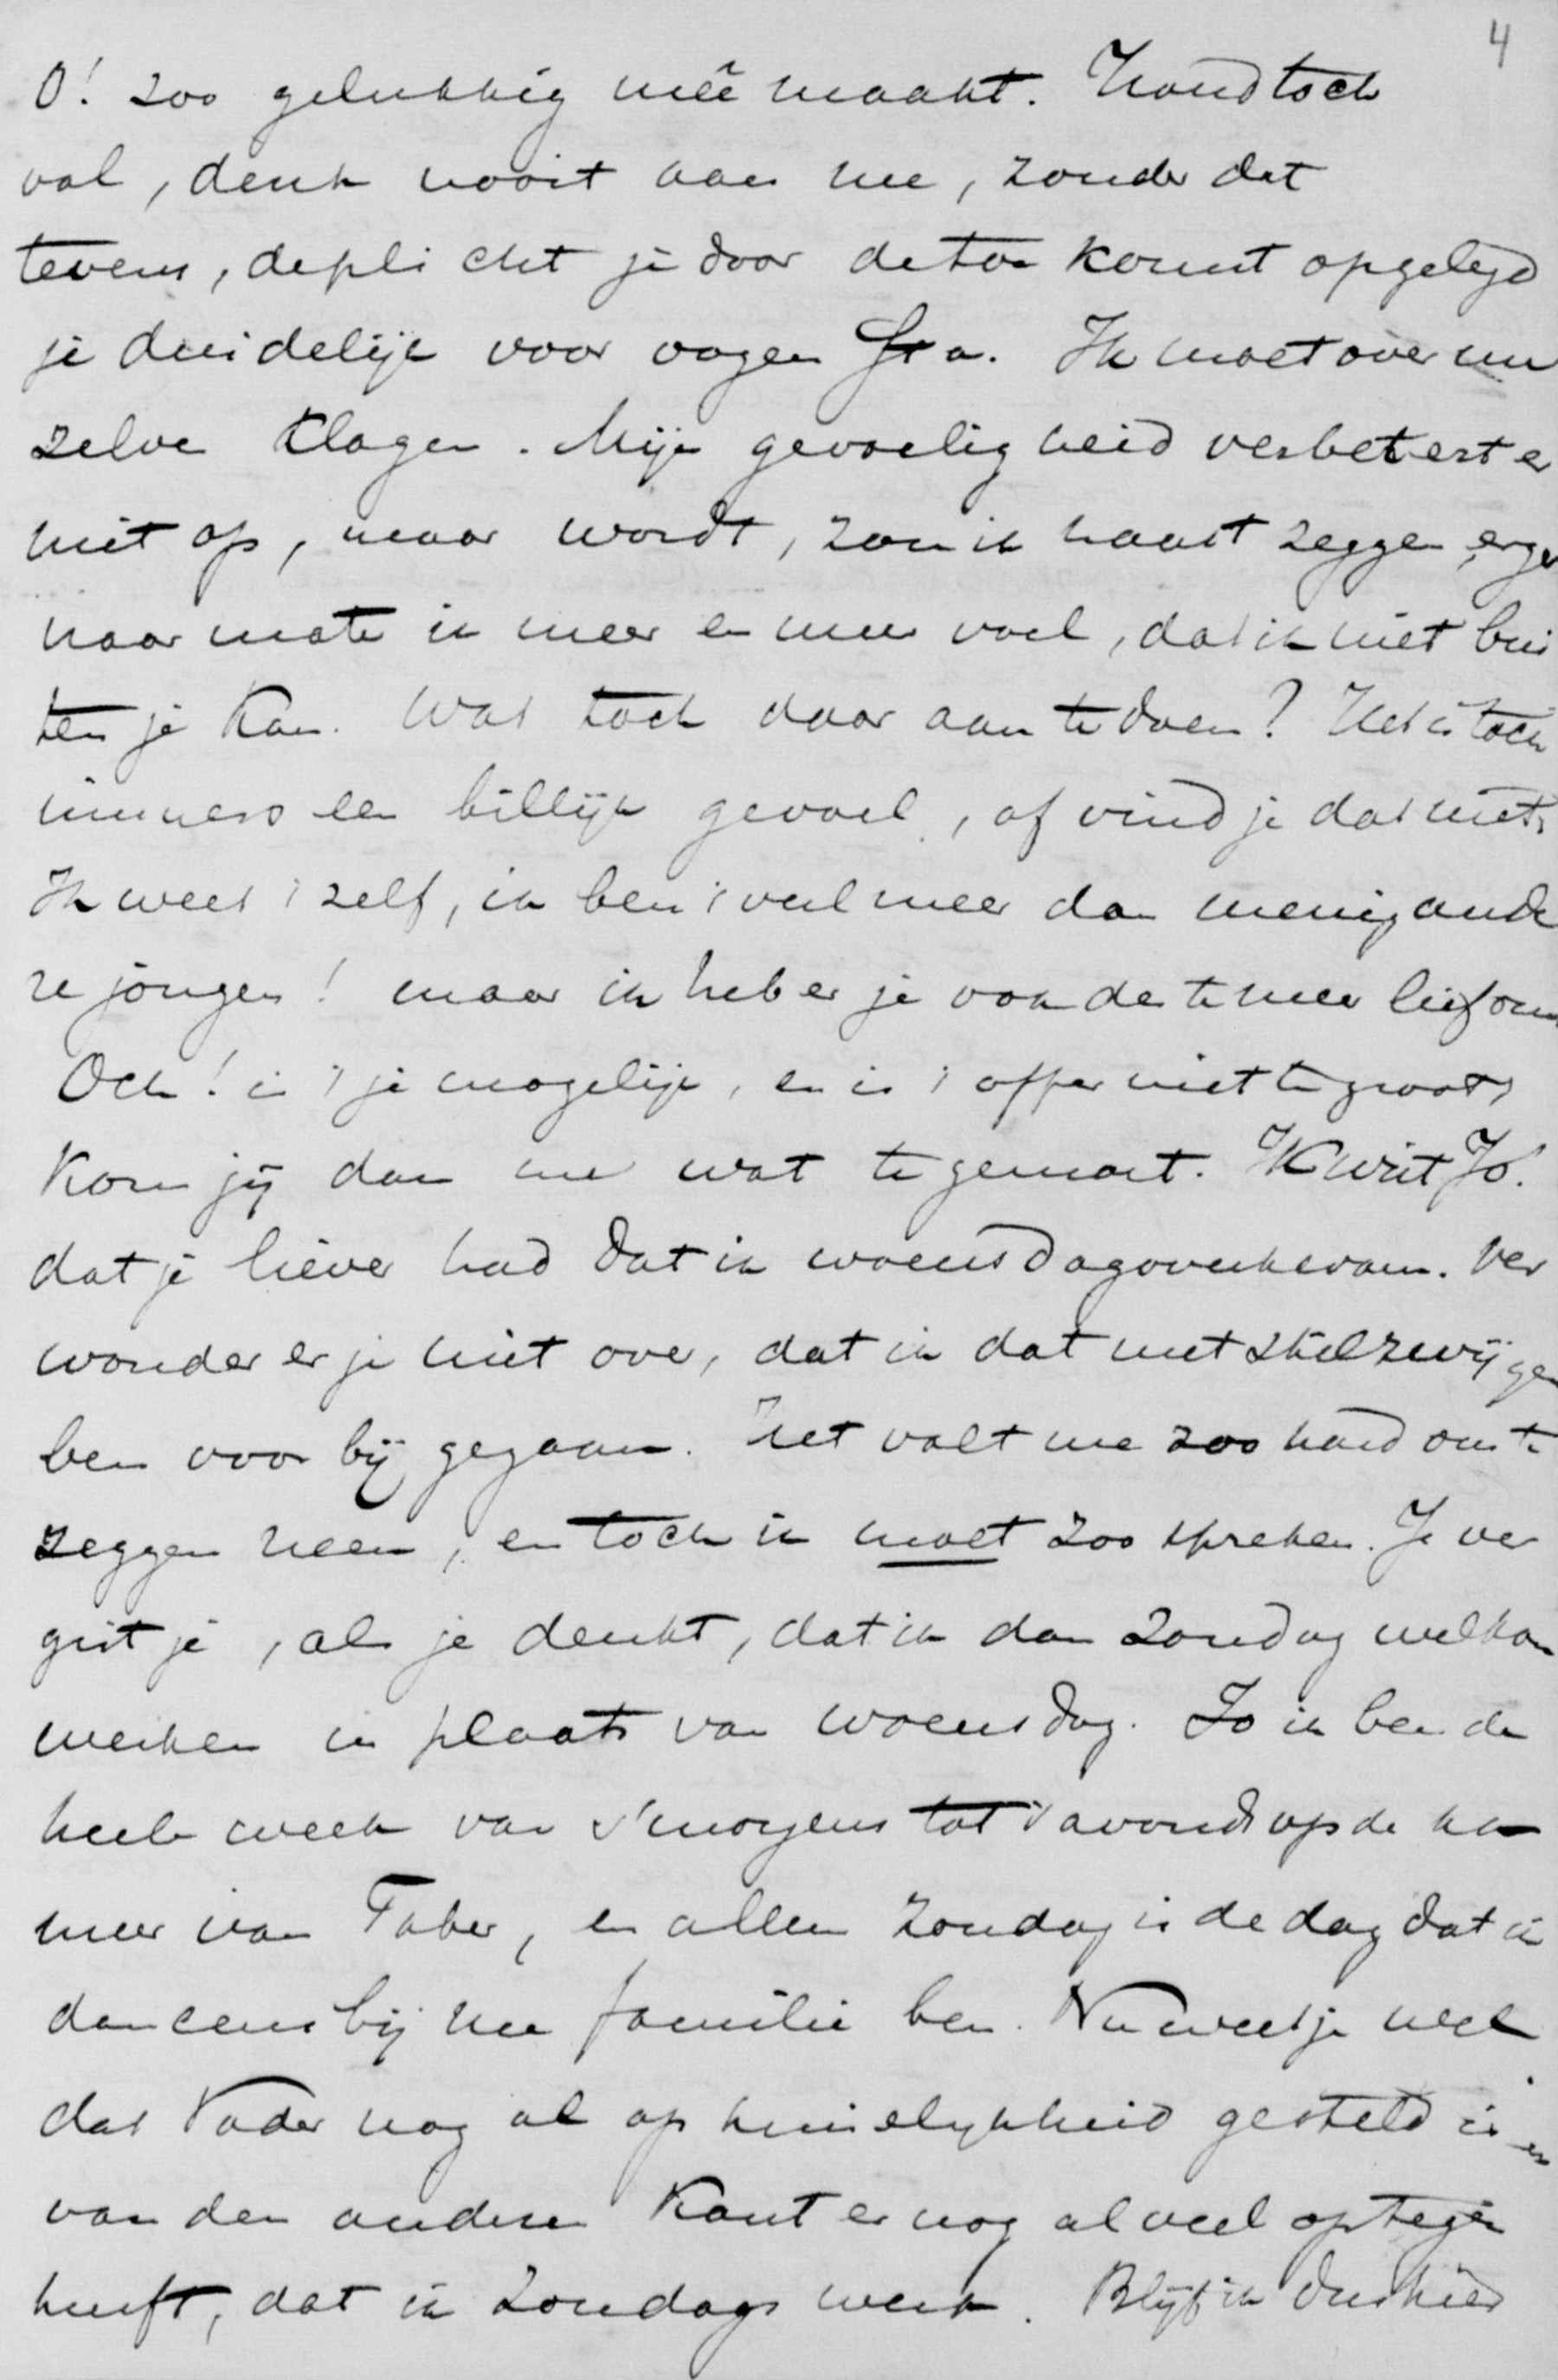 4
O! zoo gelukkig meê maakt. Houd toch
vol, denk nooit aan me, zonder dat
tevens, de plicht je door de toe komst opgelegd
je duidelijk voor oogen sta. Ik moet over me
zelve klagen. Mijn gevoelig heid verbetert er
niet op, maar wordt, zou ik haast zeggen, erger
naar mate ik meer en meer voel, dat ik niet bui
ten je kan. Wat toch daar aan te doen? Het is toch
immers een billijk gevoel, of vind je dat niet,
Ik weet 't zelf, ik ben 't veel meer dan menig ande
re jongen! maar ik heb er je ook des te meer lief om
Och! is 't je mogelijk, en is 't offer niet te groot,
Kom jij dan me wat te gemoet. Ik wist Jo!
dat je liever had dat ik woensdag overkwam. Ver
wonder er je niet over, dat ik dat met stilzwijgen
ben voor bij gegaan. Het valt me zoo hard om te
zeggen neen, en toch ik moet zoo spreken. Je ver
gist je, als je denkt, dat ik dan Zondag wel kan
werken in plaats van woensdag. Jo ik ben de
heele week van s'morgens tot 's avonds op de ka
mer van Faber, en alleen Zondag is de dag dat ik
dan eens bij me familie ben. Nu weet je wel
dat Vader nog al op huiselykheid gesteld is en
van den anderen Kant er nog al veel op tegen
heeft, dat ik Zondags werk. Blijf ik dus hier